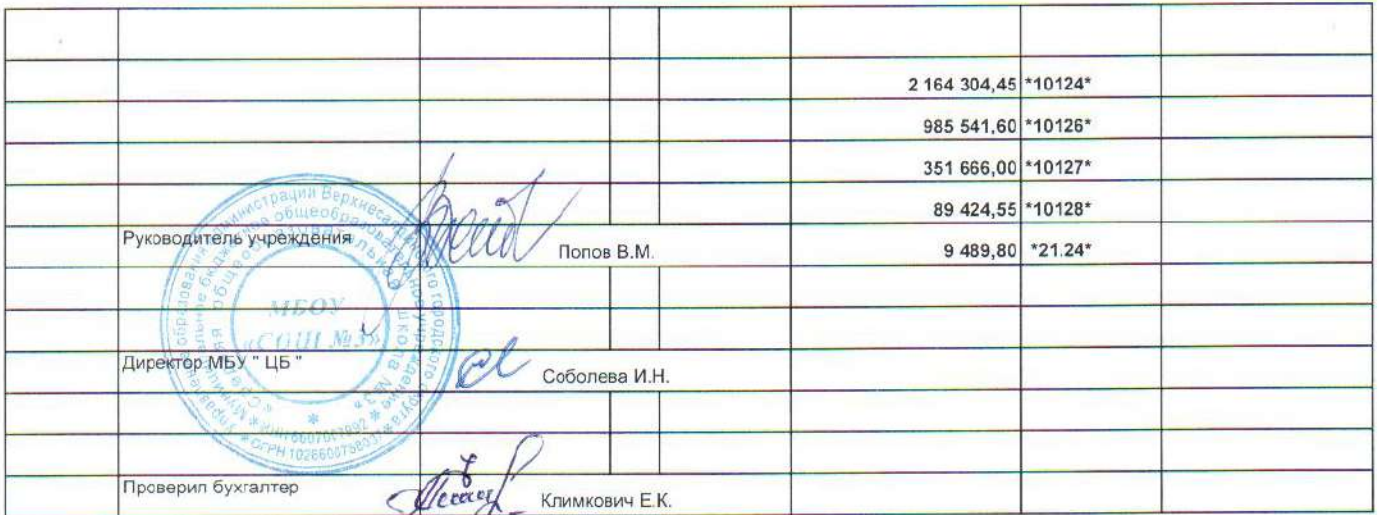 2 164 304,45 *10124*
985 541,60 *10126*
351 666,00 *10127*
89 424,55 *10128*
Руководитель учреждения Попов В.М. 9 489,80 *21.24*
МБОУ
«СОШ №3»
Директор МБУ " ЦБ " Соболева И.Н.
Проверил бухгалтер Климкович Е.К.